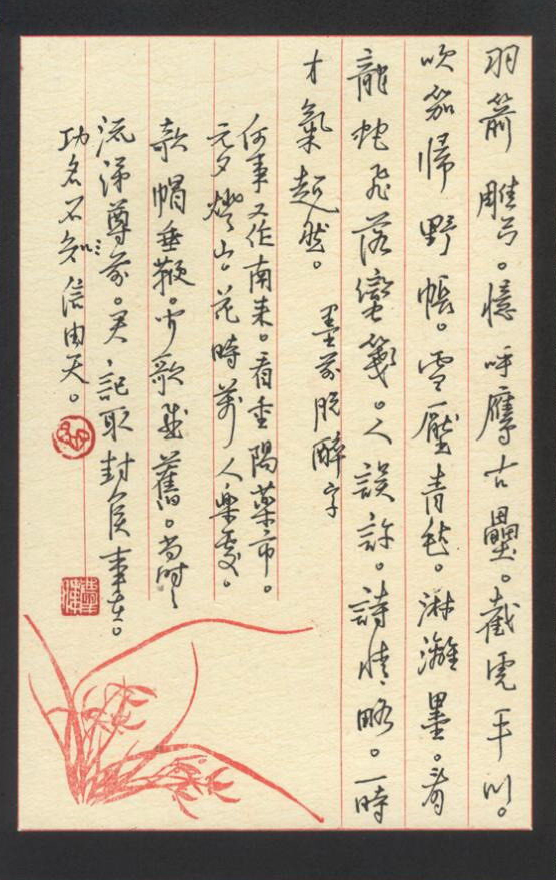 羽箭雕弓。憶呼鷹古壘。截虎平川。
吹笳歸野帳。雪壓青毡。淋漓墨。看
龍蛇飛落蠻箋。人誤許。詩情略。一時
才氣超然。 墨前脫醉字
何事又作南来。看重陽藥市。
元夕燈山。花時萬人樂處。
欹帽垂鞭。聞歌感舊。尚時々
流涕尊前。君記取封侯事在。
功名不知信由天。